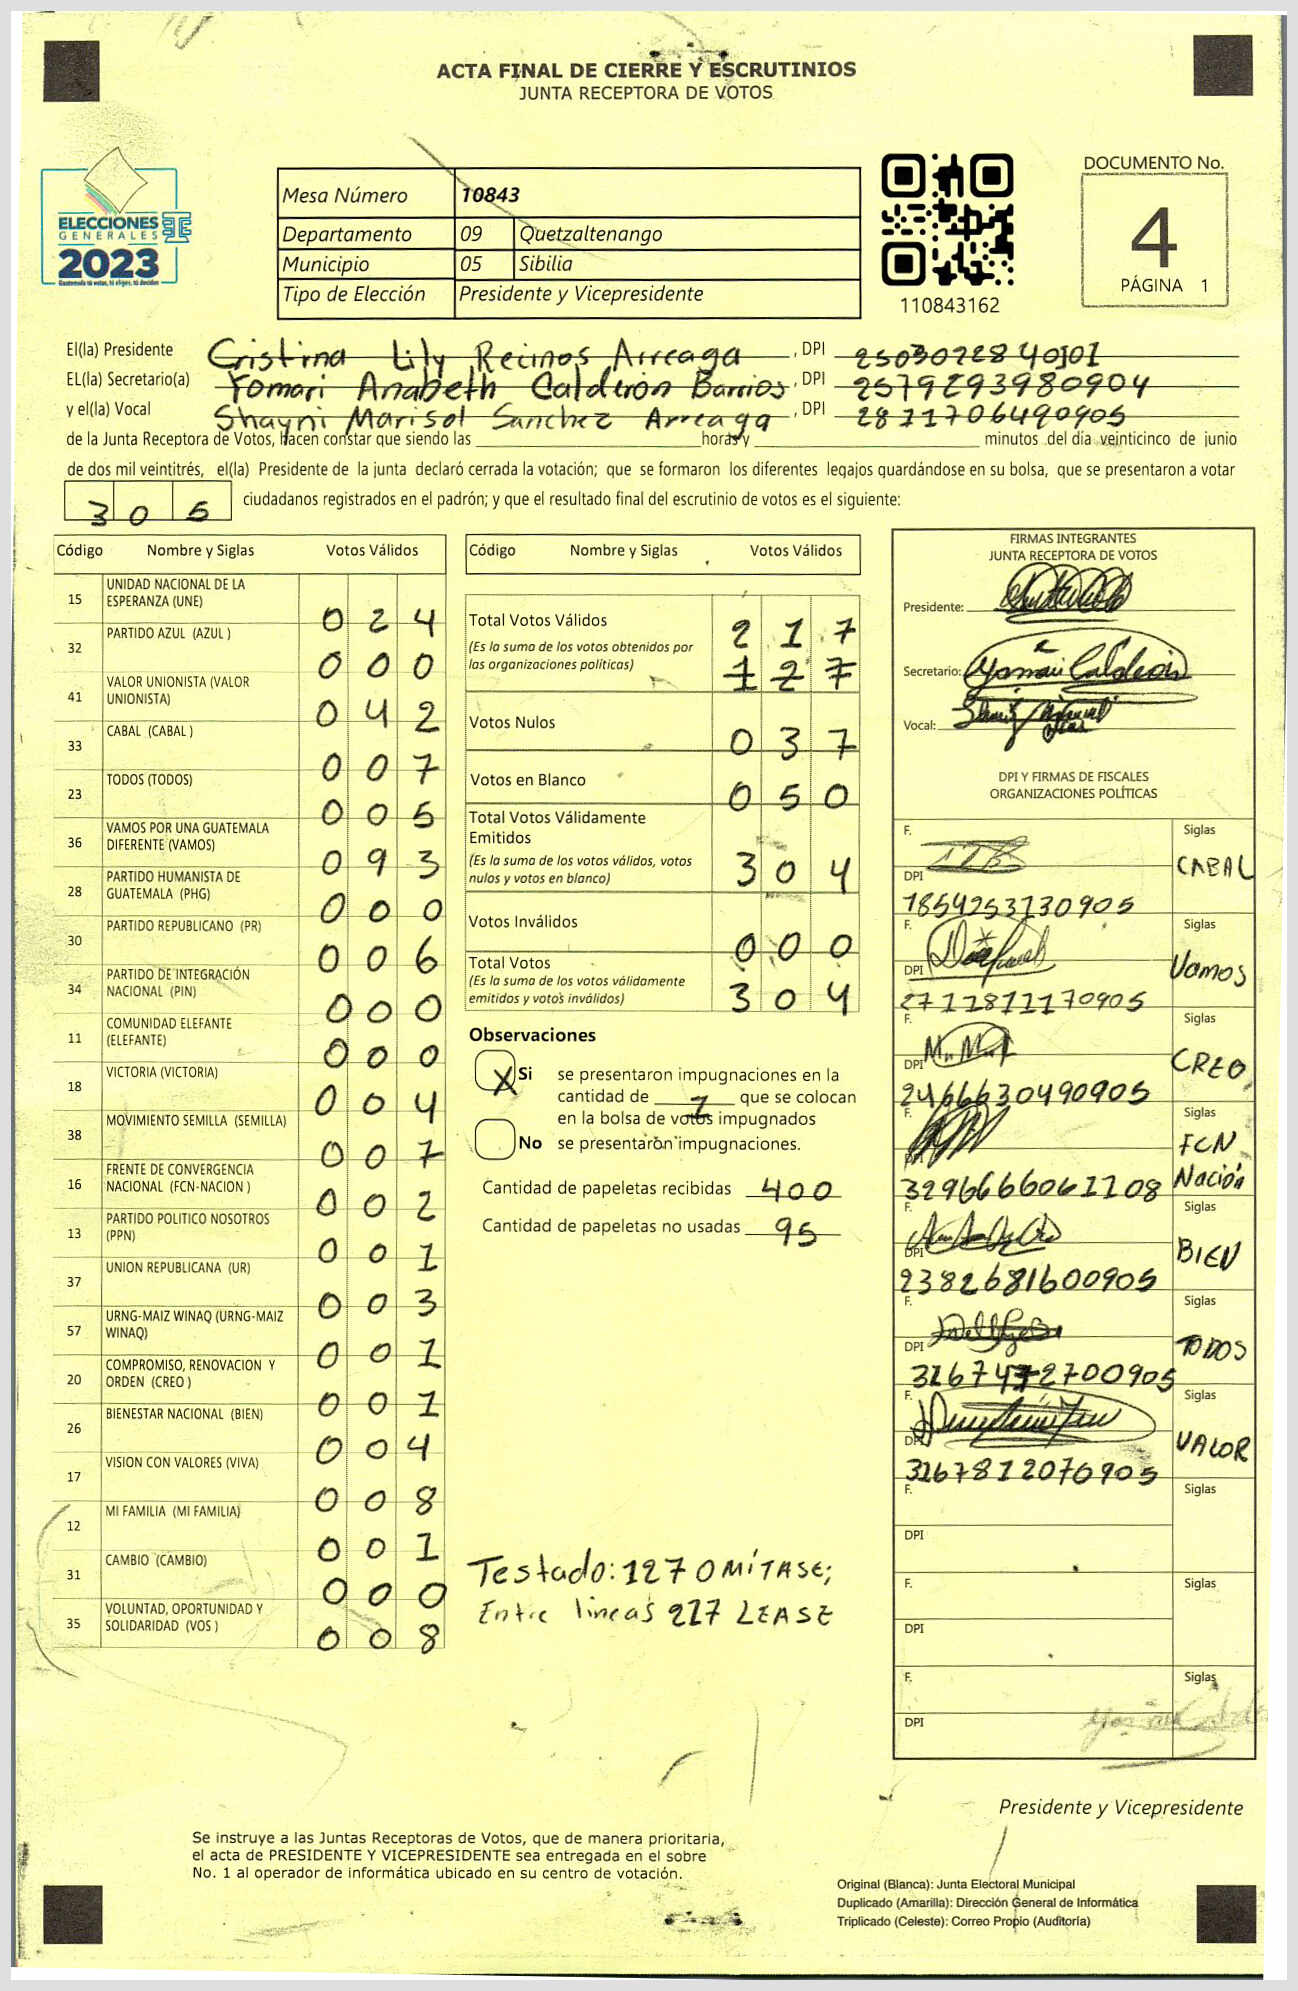 ACTA FINAL DE CIERRE Y ESCRUTINIOS
JUNTA RECEPTORA DE VOTOS
ELECCIONES
GENERALES
2023
Guatemala tú votas, tú eliges, tú decides
Mesa Número 10843
Departamento 09 Quetzaltenango
Municipio 05 Sibilia
Tipo de Elección Presidente y Vicepresidente
110843162
DOCUMENTO No.
4
PÁGINA 1
El(la) Presidente Cristina Lily Recinos Arreaga , DPI 2503022840901
EL(la) Secretario(a) Yomari Anabeth Calderón Barrios , DPI 2579293980904
y el(la) Vocal Shayni Marisol Sanchez Arreaga , DPI 2871706490905
de la Junta Receptora de Votos, hacen constar que siendo las horas y minutos del día veinticinco de junio
de dos mil veintitrés, el(la) Presidente de la junta declaró cerrada la votación; que se formaron los diferentes legajos guardándose en su bolsa, que se presentaron a votar
305 ciudadanos registrados en el padrón; y que el resultado final del escrutinio de votos es el siguiente:
Código Nombre y Siglas Votos Válidos
15 UNIDAD NACIONAL DE LA ESPERANZA (UNE) 024
32 PARTIDO AZUL (AZUL ) 000
41 VALOR UNIONISTA (VALOR UNIONISTA) 042
33 CABAL (CABAL ) 007
23 TODOS (TODOS) 005
36 VAMOS POR UNA GUATEMALA DIFERENTE (VAMOS) 093
28 PARTIDO HUMANISTA DE GUATEMALA (PHG) 000
30 PARTIDO REPUBLICANO (PR) 006
34 PARTIDO DE INTEGRACIÓN NACIONAL (PIN) 000
11 COMUNIDAD ELEFANTE (ELEFANTE) 000
18 VICTORIA (VICTORIA) 004
38 MOVIMIENTO SEMILLA (SEMILLA) 007
16 FRENTE DE CONVERGENCIA NACIONAL (FCN-NACION ) 002
13 PARTIDO POLITICO NOSOTROS (PPN) 001
37 UNION REPUBLICANA (UR) 003
57 URNG-MAIZ WINAQ (URNG-MAIZ WINAQ) 001
20 COMPROMISO, RENOVACION Y ORDEN (CREO ) 001
26 BIENESTAR NACIONAL (BIEN) 004
17 VISION CON VALORES (VIVA) 008
12 MI FAMILIA (MI FAMILIA) 001
31 CAMBIO (CAMBIO) 000
35 VOLUNTAD, OPORTUNIDAD Y SOLIDARIDAD (VOS ) 008
Código Nombre y Siglas Votos Válidos
Total Votos Válidos 217
(Es la suma de los votos obtenidos por
las organizaciones políticas) 127
Votos Nulos 037
Votos en Blanco 050
Total Votos Válidamente
Emitidos
(Es la suma de los votos válidos, votos
nulos y votos en blanco) 304
Votos Inválidos 000
Total Votos
(Es la suma de los votos válidamente
emitidos y votos inválidos) 304
Observaciones
X Si se presentaron impugnaciones en la
cantidad de 1 que se colocan
en la bolsa de votos impugnados
No se presentaron impugnaciones.
Cantidad de papeletas recibidas 400
Cantidad de papeletas no usadas 95
Testado: 127 OMÍTASE;
Entre lineas 217 LEASE
FIRMAS INTEGRANTES
JUNTA RECEPTORA DE VOTOS
Presidente:
Secretario: Yomari Calderón
Vocal:
DPI Y FIRMAS DE FISCALES
ORGANIZACIONES POLÍTICAS
F. Siglas
DPI CABAL
1854253130905
F. Siglas
DPI Vamos
2711811170905
F. Siglas
DPI CREO
2466630490905
F. Siglas
DPI FCN Nación
3296666061108
F. Siglas
DPI BIEN
2382681600905
F. Siglas
DPI TODOS
F. Siglas
DPI VALOR
3167812070905
F. Siglas
DPI
F. Siglas
DPI
F. Siglas
DPI
Presidente y Vicepresidente
Se instruye a las Juntas Receptoras de Votos, que de manera prioritaria,
el acta de PRESIDENTE Y VICEPRESIDENTE sea entregada en el sobre
No. 1 al operador de informática ubicado en su centro de votación.
Original (Blanca): Junta Electoral Municipal
Duplicado (Amarilla): Dirección General de Informática
Triplicado (Celeste): Correo Propio (Auditoría)